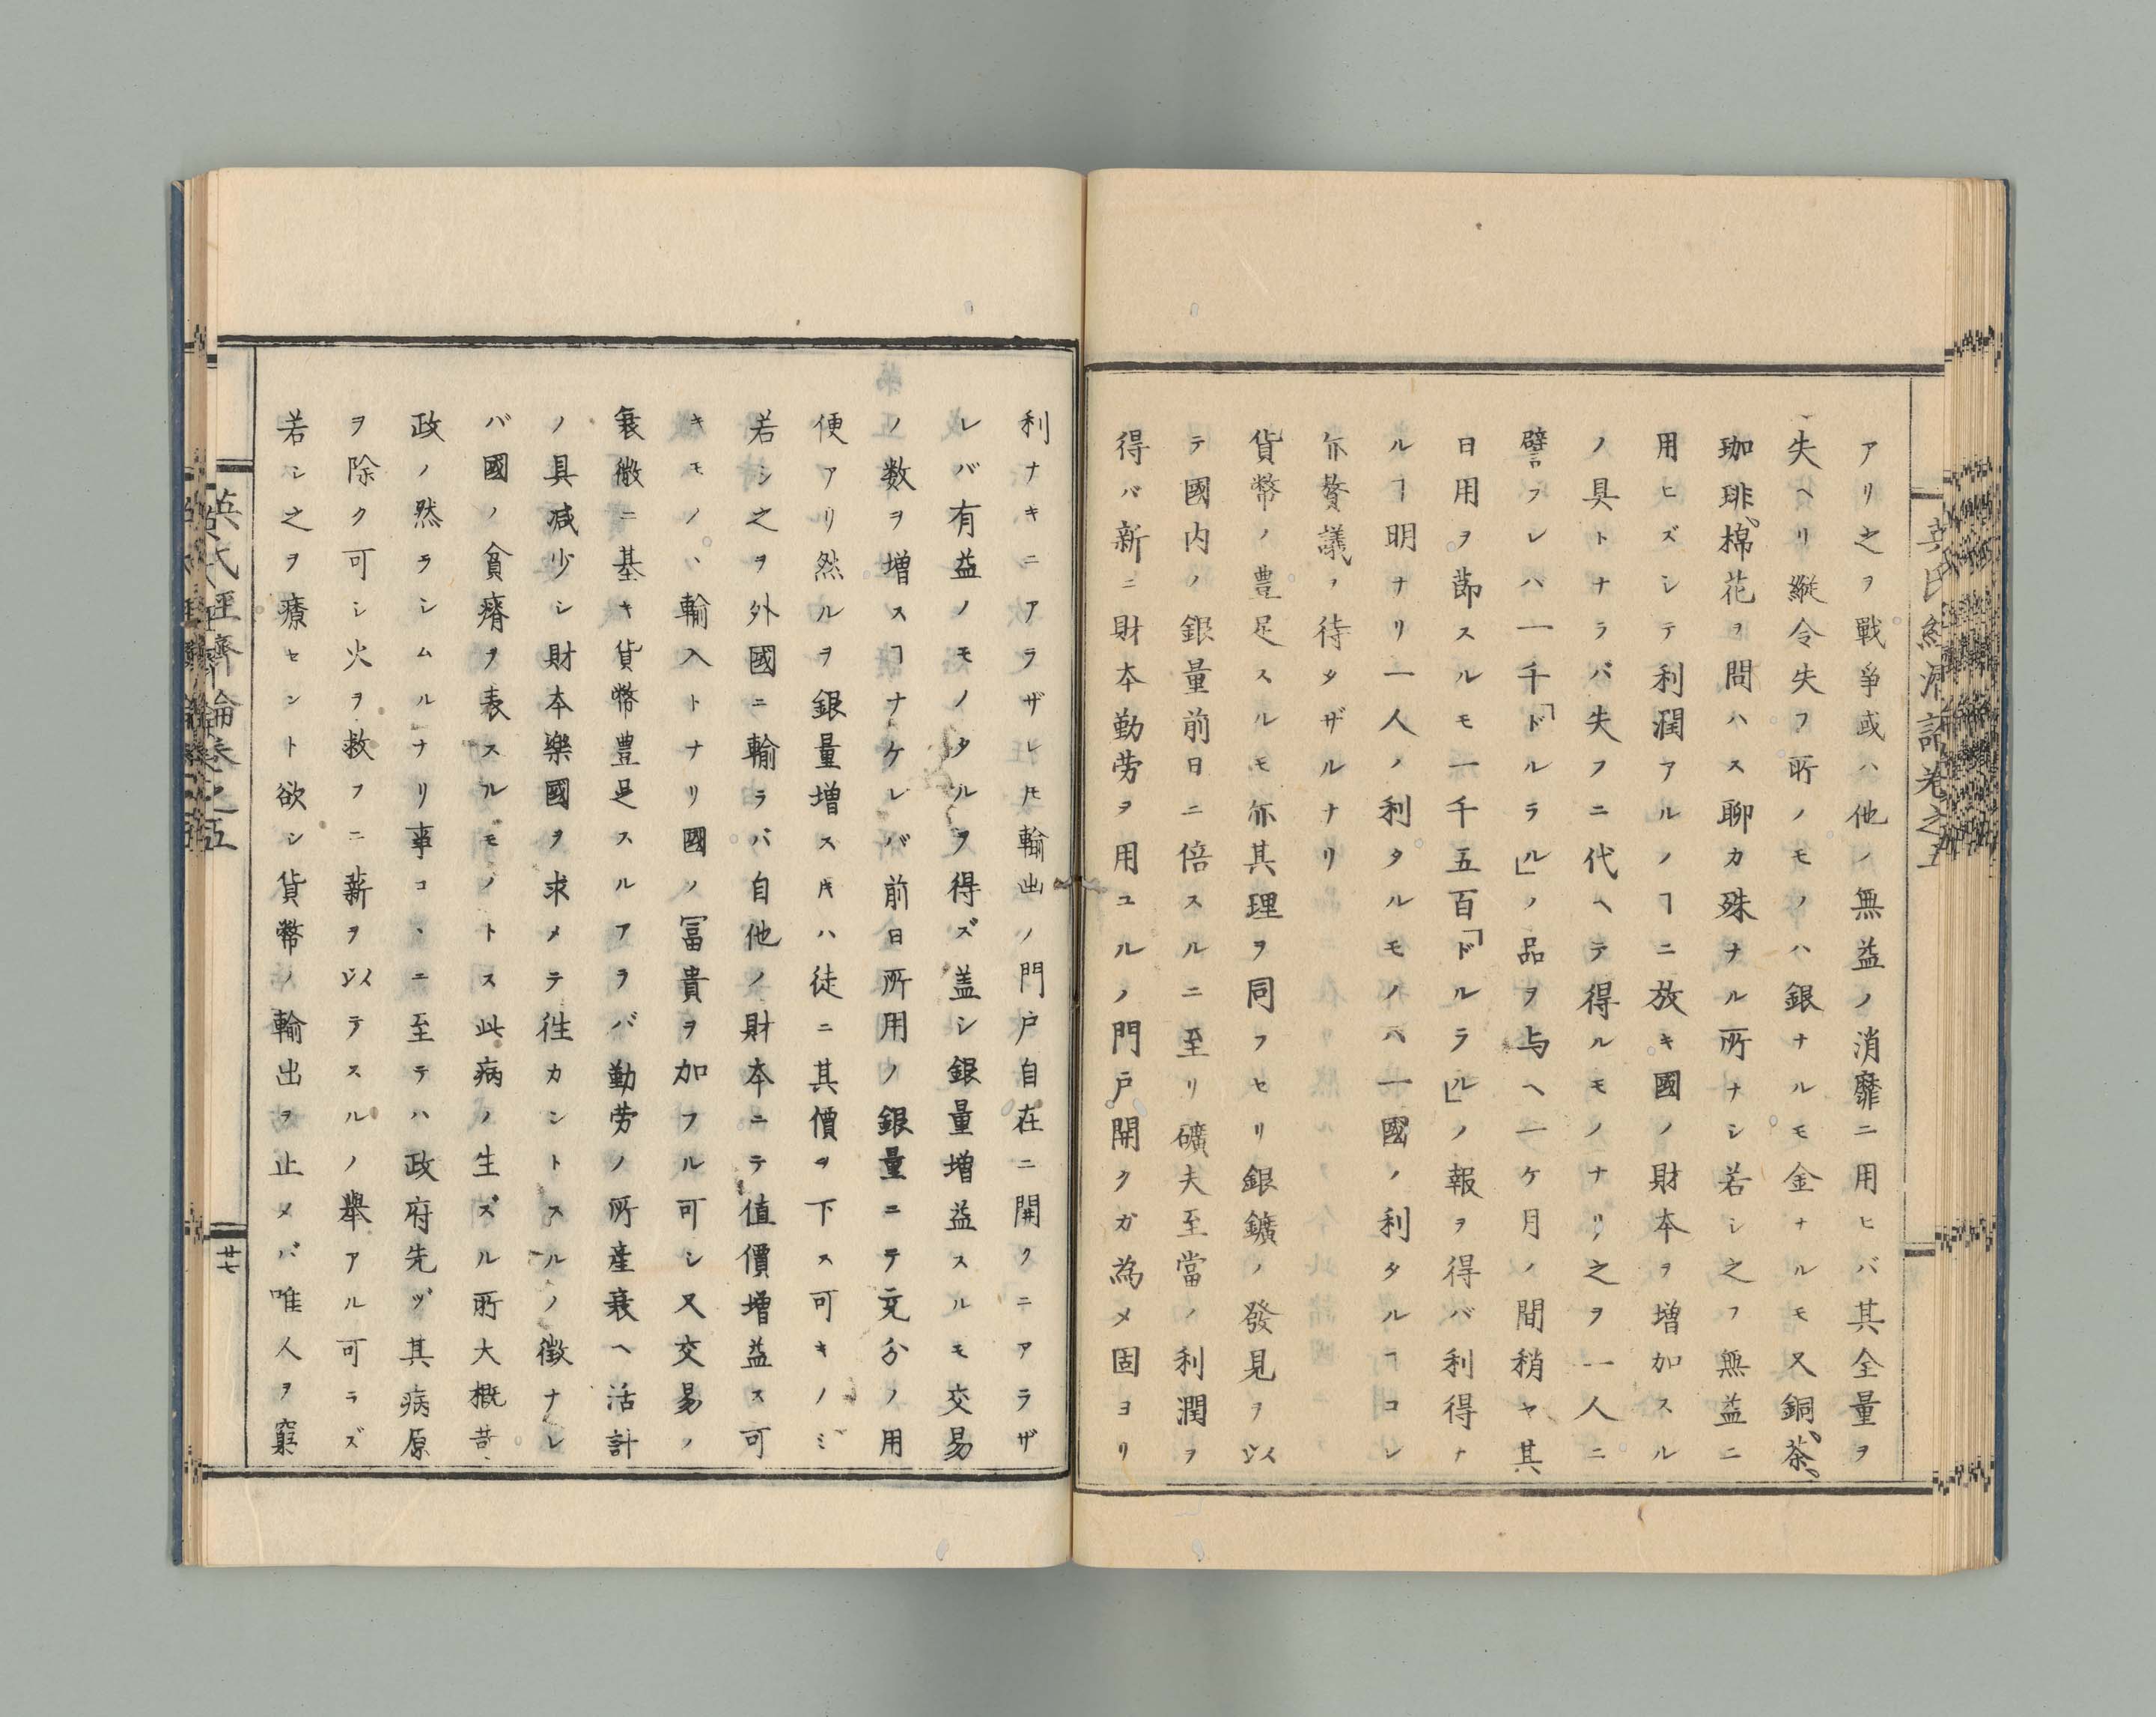 英氏経濟論巻之五
アリ之ヲ戰爭或ハ他ノ無益ノ消靡ニ用ヒバ其全量ヲ
失ヘリ縦令失フ所ノモノハ銀ナルモ金ナルモ又銅、茶、
珈琲、棉花ヲ問ハス聊カ殊ナル所ナシ若シ之ヲ無益ニ
用ヒズシテ利潤アルノヿニ放キ國ノ財本ヲ増加スル
ノ具トナラバ失フニ代ヘテ得ルモノナリ之ヲ一人ニ
譬フレハ一千「ドルラル」ノ品ヲ与ヘ一ケ月ノ間稍ヤ其
日用ヲ節スルモ一千五百「ドルラル」ノ報ヲ得バ利得ナ
ルヿ明ナリ一人ノ利タルモノハ一國ノ利タルヿコレ
亦贅議ヲ待タザルナリ
貨幣ノ豊足スルモ亦其理ヲ同フセリ銀鑛ノ發見ヲ以
テ國内ノ銀量前日ニ倍スルニ至リ礦夫至當ノ利潤ヲ
得バ新ニ財本勤劳ヲ用ユルノ門戸開クガ為メ固ヨリ
利ナキニアラザレ𪜈輸出ノ門戸自在ニ開クニアラザ
レバ有益ノモノタルヲ得ズ盖シ銀量増益スルモ交易
ノ数ヲ増スヿナケレバ前日所用ノ銀量ニテ充分ノ用
便アリ然ルヲ銀量増スキハ徒ニ其價ヲ下ス可キノミ
若シ之ヲ外國ニ輸ラバ自他ノ財本ニテ値價増益ス可
キモノハ輸入トナリ國ノ冨貴ヲ加フル可シ又交易ノ
衰微ニ基キ貨幣豊足スルアラバ勤劳ノ所産衰ヘ活計
ノ具减少シ財本樂國ヲ求メテ徃カントスルノ徴ナレ
バ國ノ貧瘠ヲ表スルモノトス此病ノ生ズル所大概苛
政ノ然ラシムルナリ事コヽニ至テハ政府先ヅ其病原
ヲ除ク可シ火ヲ救フニ薪ヲ以テスルノ舉アル可ラズ
若シ之ヲ療セント欲シ貨幣ノ輸出ヲ止メバ唯人ヲ窮
英氏経齊論巻之五
廿七